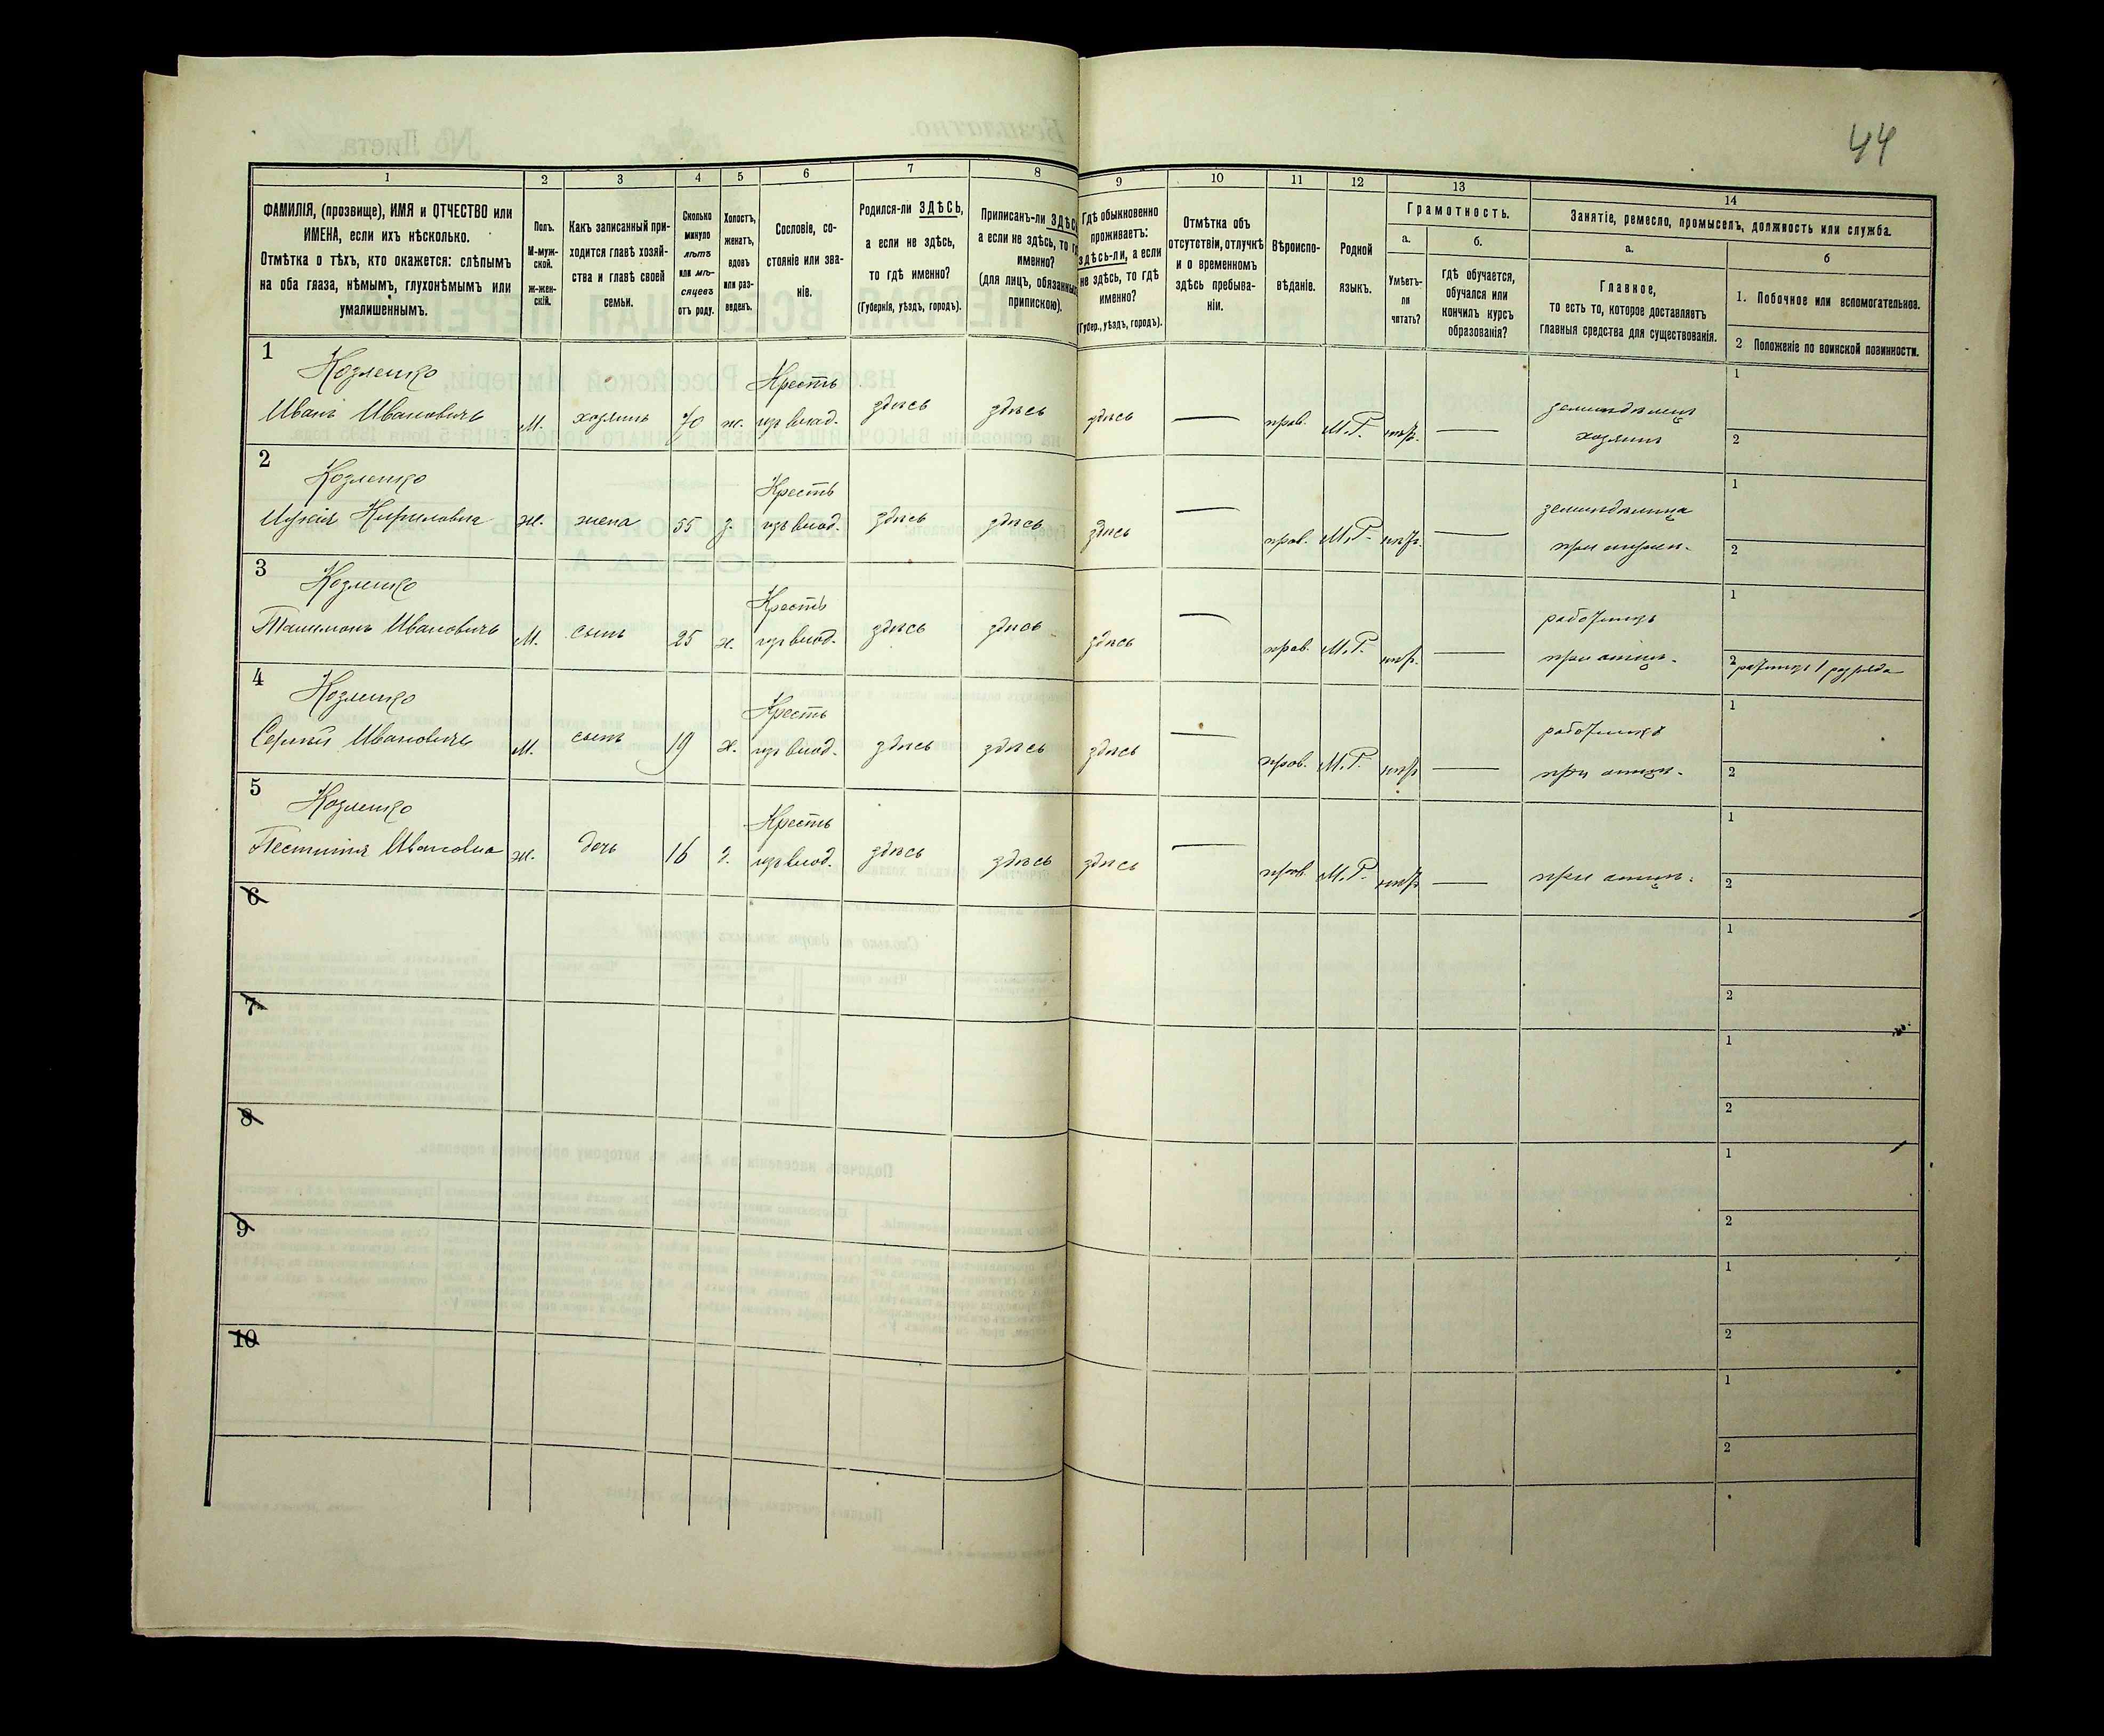 44
1 2 3 4 5 6 7 8 9 10 11 12 13 14
ФАМИЛІЯ, (прозвище), ИМЯ и ОТЧЕСТВО или
ИМЕНА, если ихъ нѣсколько.
Отмѣтка о тѣхъ, кто окажется: слѣпымъ
на оба глаза, нѣмымъ, глухонѣмымъ или
умалишеннымъ.
Полъ.
М-муж-
ской.
Ж-жен-
скій.
Какъ записанный при-
ходится главѣ хозяй-
ства и главѣ своей
семьи.
Сколько
минуло
лѣтъ
или мѣ-
сяцевъ
отъ роду.
Холостъ,
женатъ,
вдовъ
или раз-
веденъ.
Сословіе, со-
стояніе или зва-
ніе.
Родился-ли ЗДѢСЬ,
а если не здѣсь,
то гдѣ именно?
(Губернія, уѣздъ, городъ).
Приписанъ-ли ЗДѢСЬ
а если не здѣсь, то гдѣ
именно?
(для лицъ, обязанныхъ
припискою).
Гдѣ обыкновенно
проживаетъ:
здѣсь-ли, а если
не здѣсь, то гдѣ
именно?
(Губер., уѣздъ, городъ).
Отмѣтка объ
отсутствіи, отлучкѣ
и о временномъ
здѣсь пребыва-
ніи.
Вѣроиспо-
вѣданіе.
Родной
языкъ.
Грамотность.
а.
Умѣетъ-
ли
читать?
б.
гдѣ обучается,
обучался или
кончилъ курсъ
образованія?
Занятіе, ремесло, промыселъ, должность или служба.
а.
Главное,
то есть то, которое доставляетъ
главныя средства для существованія.
б
1. Побочное или вспомогательное.
2 Положеніе по воинской повинности.
1 Козленко Крестъ 1
Иванъ Ивановичъ М. хозяинъ 70 ж. изъ влад. здѣсь здѣсь здѣсь — прав. М.Р. — земледѣлецъ
хозяинъ 2
2 Козленко Крестъ 1
Кириловна ж. жена 55 з. изъ влад. здѣсь здѣсь здѣсь — прав. М.Р. — земледѣлица
при 2
3 Козленко Крестъ 1
Ивановичъ М. сынъ 25 х. изъ влад. здѣсь здѣсь здѣсь — прав. М.Р. — работникъ
при отцѣ. 2 ратникъ 1 разряда
4 Козленко Крестъ 1
Сергѣй Ивановичъ М. сынъ 19 х. изъ влад. здѣсь здѣсь здѣсь — прав. М.Р. — работникъ
при отцѣ. 2
5 Козленко Крестъ 1
Ивановна ж. дочь 16 изъ влад. здѣсь здѣсь здѣсь — прав. М.Р. — при отцѣ. 2
6 1
2
7 1
2
8 1
2
9 1
2
10 1
2